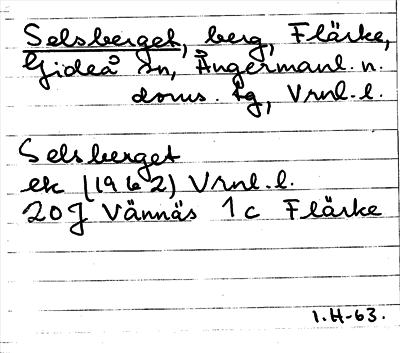 Selsberget, berg, Flärke,
Gideå sn, Ångermanl. n.
doms. fg, Vrnl. l.
Selsberget
ek (1962) Vrnl. l.
20J Vännäs 1c Flärke
1.H-63.